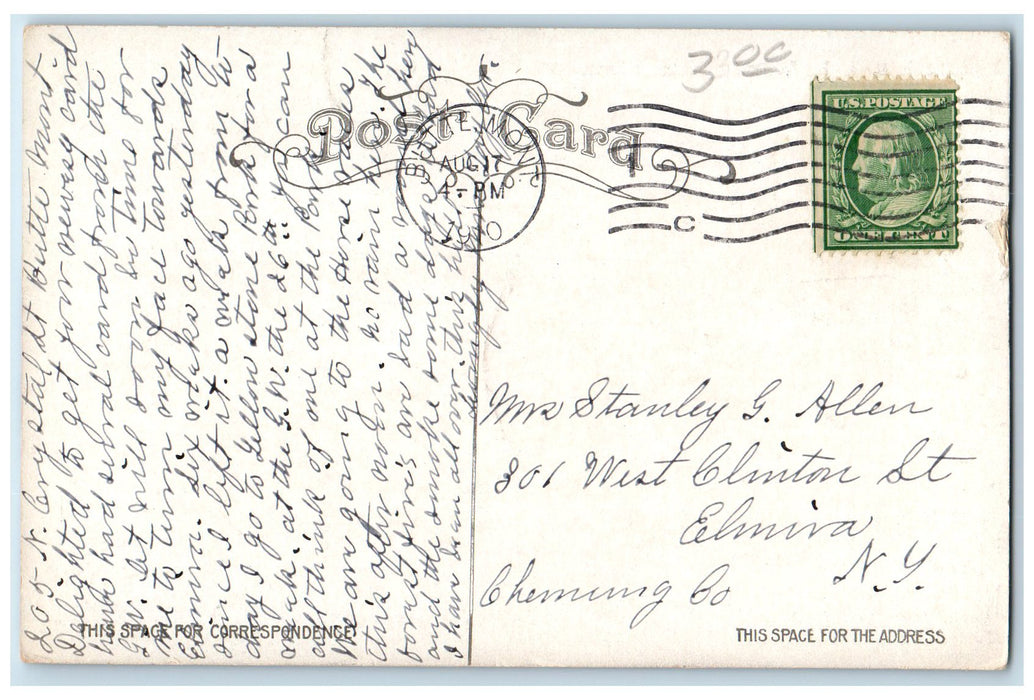 3.00
Post Card
BUTTE, MONT.
AUG 17
4-PM
1910
C
U.S. POSTAGE
ONE CENT
205 N. Crystal St Butte Mont
Delighted to get your newsy card
have had several cards from the
G.W. It will soon be time for
me to turn my face towards
Elmira. Six weeks ago yesterday
since I left it. a week from to-
day I go to Yellowstone Park for a
week. at the G.W. the 26th can
all think of one at the Park.
We are going to the Horse races
this after noon. no rain here. the
forest fires are bad a
and the smoke some days
I have been all over this
Mrs Stanley G. Allen
301 West Clinton St
Elmira
N.Y.
Chemung Co
THIS SPACE FOR CORRESPONDENCE
THIS SPACE FOR THE ADDRESS